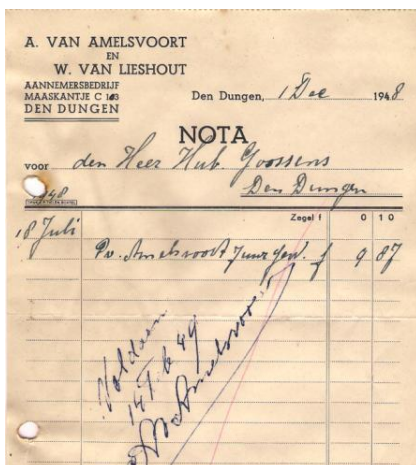 A. VAN AMELSVOORT
EN
W. VAN LIESHOUT
AANNEMERSBEDRIJF
MAASKANTJE C 103
DEN DUNGEN
Den Dungen, 1 Dec 1948
NOTA
voor den Heer Hub Goossens
Den Dungen
1948
Zegel f 0 10
18 Juli
Pv. Amelsvoort 7 uur gew. f 9 87
Voldaan
6 49
Amelsvoort